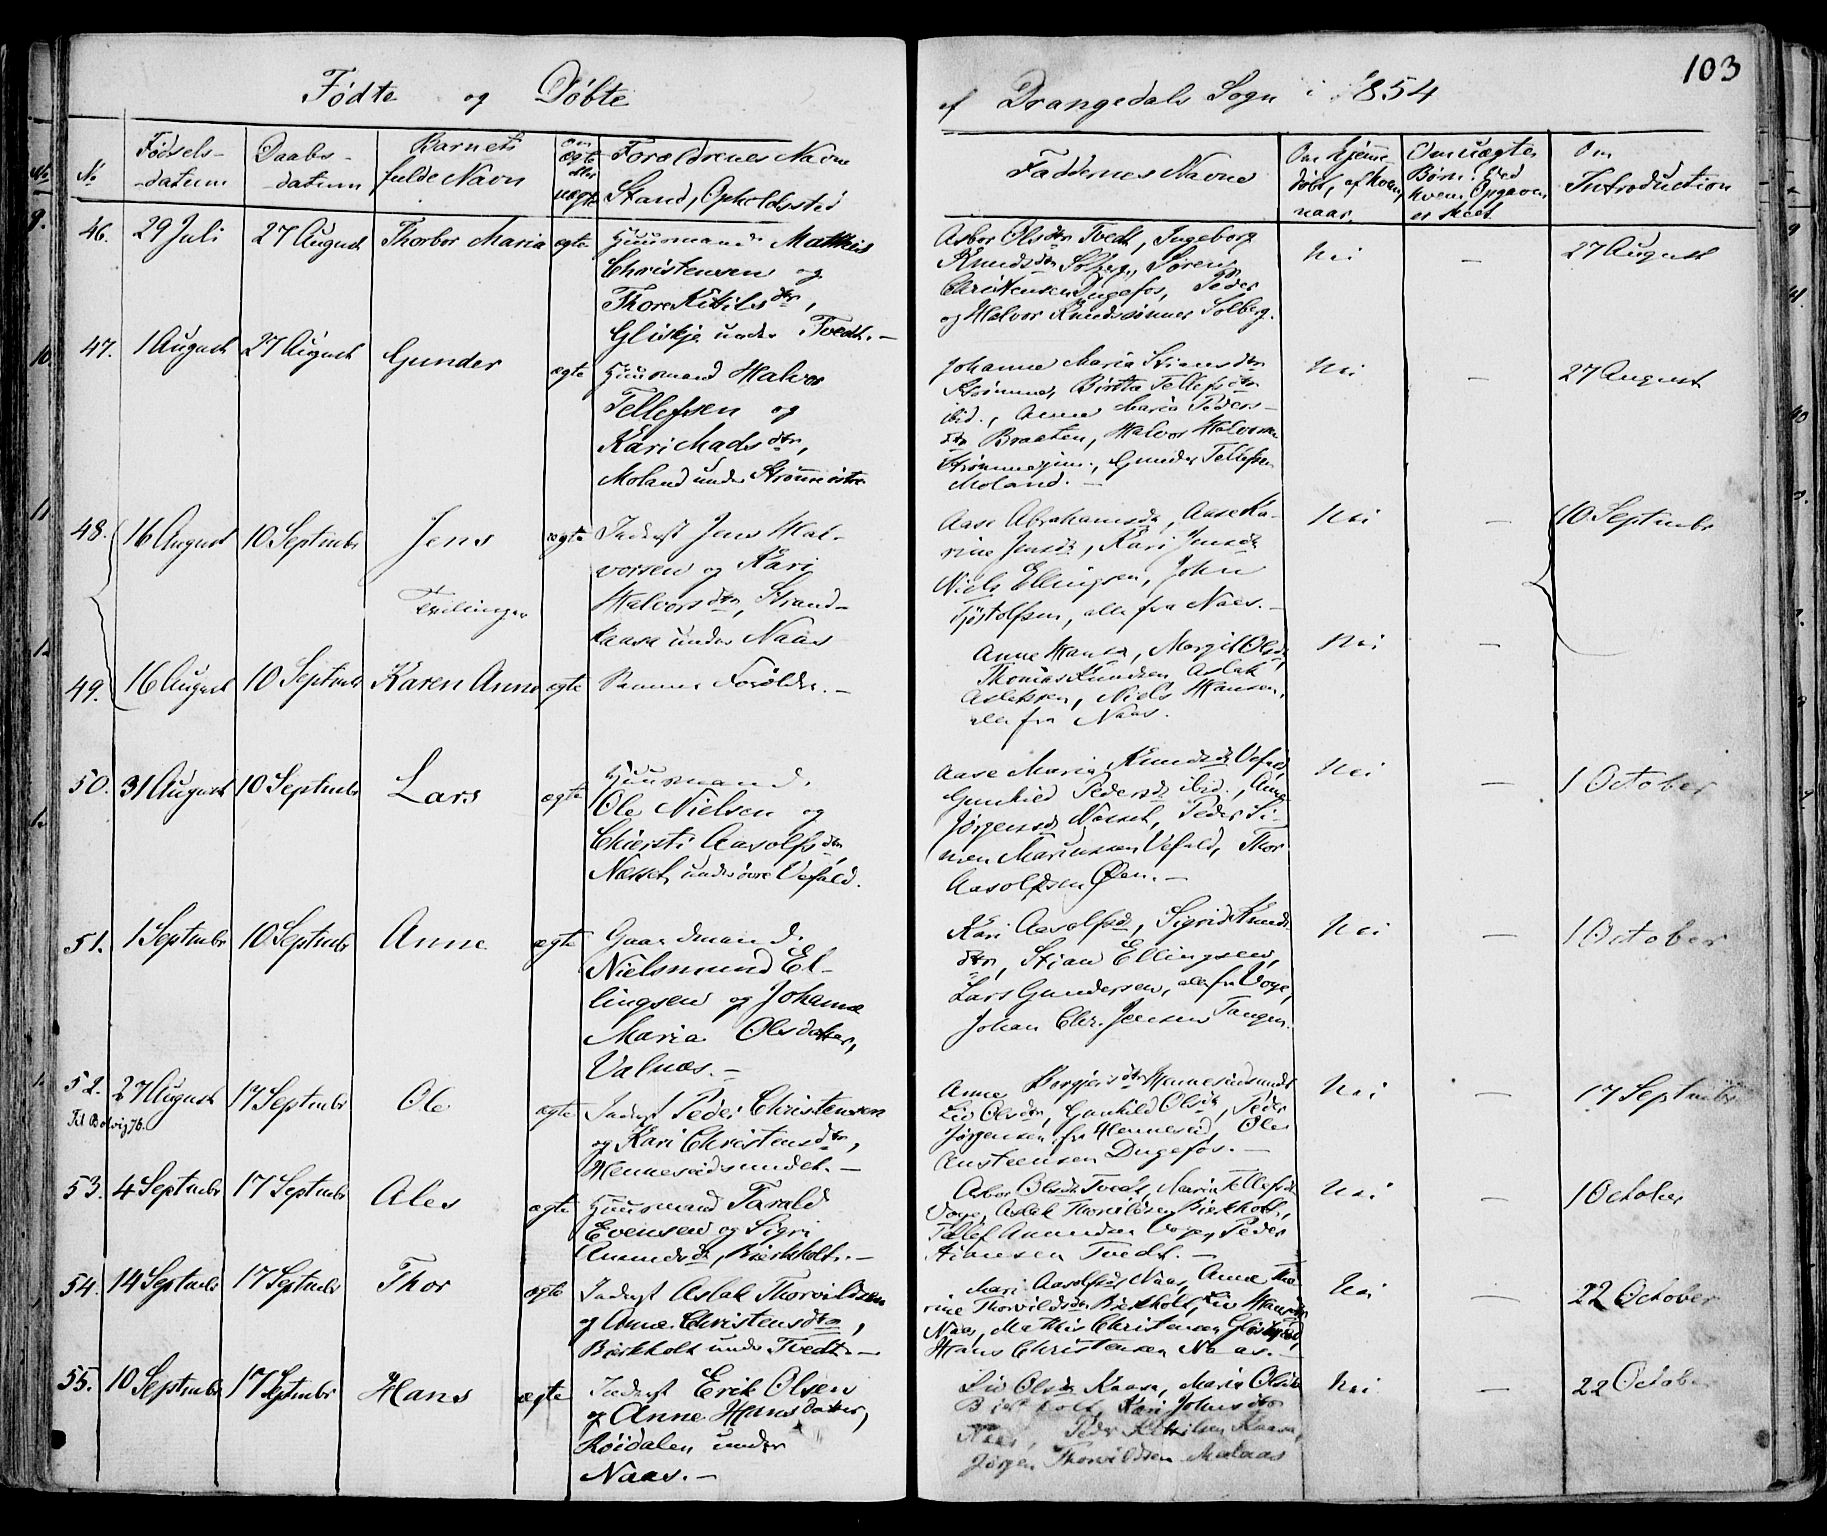 103
Fødte og Døbte
af Drangedals Sogn i 1854
No
Fødsels-
-datum
Daabs-
-datum
Barnets
fulde Navn
om
ægte
eller
uægte
Forældrenes Navne
Stand, Opholdssted
Faddernes Navne
Om hjemme-
døbt, af hvem,
naar
Om uægte
Børn: ved
hvem Opgaven
er skeet
Om
Introduction
46. 29 Juli 27 August Thorbor Maria ægte Huusmand Mathis
Christensen og
Thore Kittilsdtr,
Gliskje under Tvedt.-
Asbor Olsdtr Tvedt, Ingeborg
Knudsdtr Solberg, Søren
Christensen Dugefos, Peder
og Halvor Knudssønner Solberg.
Nei - 27 August
47. 1 August 27 August Gunder ægte Huusmand Halvor
Tellefsen og
Kari Madsdtr,
Moland under Strømme østre
Johanne Maria Stiansdtr
Strømme, Birtta Tellefsdtr
ibid., Anne Maria Peders-
dtr Braaten, Halvor Halvorsen
Gunder Tellefsen
Moland. -
Nei - 27 August
48. 16 August 10 Septembr Jens ægte Inderst Jens Hal-
vorsen og Kari
Halvorsdtr, Strand-
kaasa under Naas
Tvillinger
Aase Abrahamsdtr, Aase Ka-
rine Jensdtr, Kari Jensdtr
Niels Ellingsen, John
Tjøstolfsen, alle fra Naas. -
Nei - 10 Septembr
49. 16 August 10 Septembr Karen Anne ægte Samme Forældre. -
Anne Hansd, Margit Olsd,
Thomas Knudsen, Aslak
Aslaksen, Niels Hansen,
alle fra Naas.
Nei -
50. 31 August 10 Septembr Lars ægte Huusmand
Ole Nielsen og
Chiersti Aasolfsdtr
Næset, under øvre Vefald.
Aase Maria Knudsdtr Vefald,
Gunhild Pedersdtr ibid., Anne
Jørgensd Næset, Peder Si-
men Mariussen Vefald, Thor
Aasolfsen Øen. -
Nei - 1 October
51. 1 Septembr 10 Septembr Anne ægte Gaardmand
Nielsmund El-
lingsen og Johanne
Maria Olsdatter,
Valnæs. -
Kari Aasolfsd, Sigrid Knuds-
dtr, Stian Ellingsen,
Lars Gundersen, alle fra Voje,
Johan Chr. Jensen Tangen.
Nei - 1 October
52. 27 August 17 Septembr Ole ægte Inderst Peder Christensen
og Kari Christensdtr,
Henneseidsundet. -
Til Bolvig 76.
Anne Henneseidsundet
Liv Olsdtr, Gunhild Olsdtr, Peder
Jørgensen fra Henneseid, Ole
Austeensen Dugefos. -
Nei - 17 Septembr
53. 4 Septembr 17 Septembr Ales ægte Huusmand Tarald
Evensen og Sigri
Amundsdtr, Bierkholt. -
Asbor Olsdtr Tvedt, Maria Tellefsdtr
Voje, Aslak Thorvildsen Bierkholt,
Tellef Amundsen Voje, Peder
Simensen Tvedt. -
Nei - 1 October
54. 14 Septembr 17 Septembr Thor ægte Inderst Aslak Thorvildsen
og Anne Christensdtr,
Bierkholt under Tvedt. -
Mari Aasolfsd Naas, Anne Ka-
rine Thorvildsdtr Bierkholt, Liv Hansdtr
Naas, Mathis Christensen Gliskje,
Hans Christensen Naas. -
Nei - 22 October
55. 10 Septembr 17 Septembr Hans ægte Inderst Erik Olsen
og Anne Hansdatter,
Røidalen under
Naas. -
Liv Olsdtr Kaasa, Maria Olsdtr
Bierkholt, Kari Johnsdtr
Naas, Peder Kittilsen Kaasa,
Jørgen Thorvildsen Molaas
Nei - 22 October